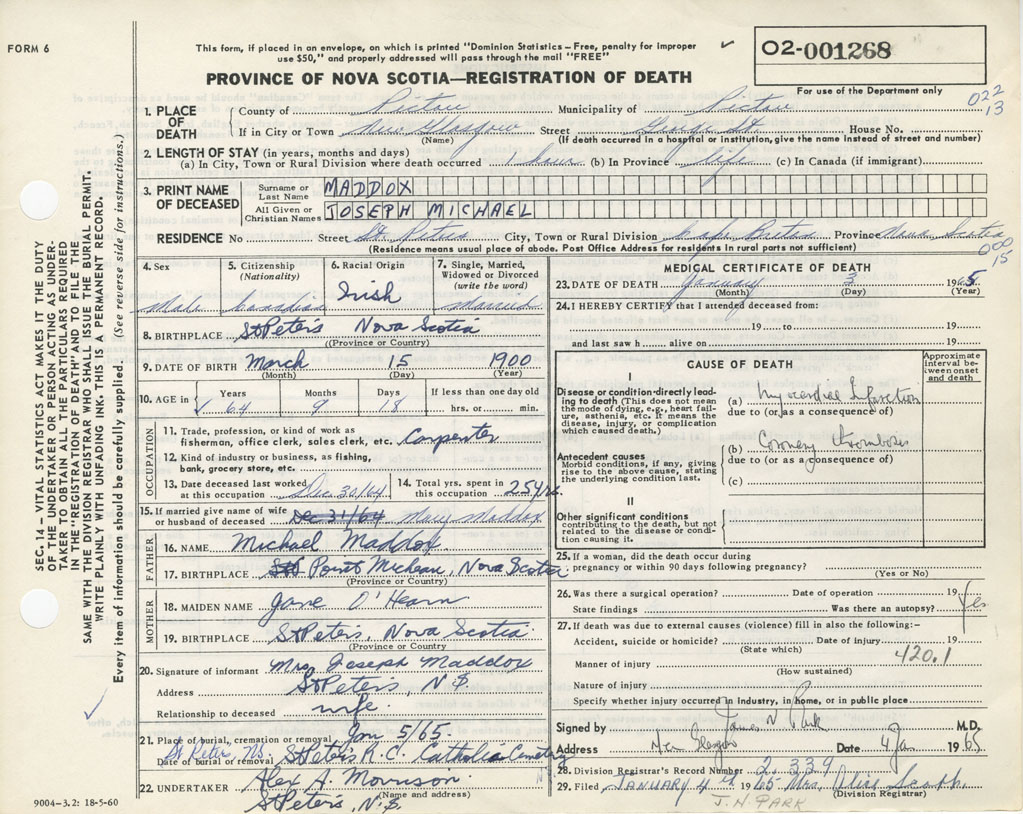 FORM 6
This form, if placed in an envelope, on which is printed "Dominion Statistics – Free, penalty for improper
use $50," and properly addressed will pass through the mail "FREE"
02-001268
PROVINCE OF NOVA SCOTIA—REGISTRATION OF DEATH
For use of the Department only
022
13
1. PLACE OF DEATH
County of Pictou Municipality of Pictou
If in City or Town New Glasgow Street George St. House No.
(Name) (If death occurred in a hospital or institution, give the name instead of street and number)
2. LENGTH OF STAY (in years, months and days)
(a) In City, Town or Rural Division where death occurred 1 hour (b) In Province life (c) In Canada (if immigrant)
3. PRINT NAME OF DECEASED
Surname or Last Name MADDOX
All Given or Christian Names JOSEPH MICHAEL
RESIDENCE No Street St. Peters City, Town or Rural Division Cape Breton Province Nova Scotia
(Residence means usual place of abode. Post Office Address for residents in rural parts not sufficient)
000
15
SEC. 14 – VITAL STATISTICS ACT MAKES IT THE DUTY
OF THE UNDERTAKER OR PERSON ACTING AS UNDER-
TAKER TO OBTAIN ALL THE PARTICULARS REQUIRED
IN THE "REGISTRATION OF DEATH" AND TO FILE THE
SAME WITH THE DIVISION REGISTRAR WHO SHALL ISSUE THE BURIAL PERMIT.
WRITE PLAINLY WITH UNFADING INK. THIS IS A PERMANENT RECORD.
Every item of information should be carefully supplied. (See reverse side for instructions.)
4. Sex Male
5. Citizenship (Nationality) Canadian
6. Racial Origin Irish
7. Single, Married, Widowed or Divorced (write the word) Married
8. BIRTHPLACE St Peter's Nova Scotia
(Province or Country)
9. DATE OF BIRTH March 15 1900
(Month) (Day) (Year)
10. AGE in Years 64 Months 9 Days 18 If less than one day hrs. or min.
OCCUPATION
11. Trade, profession, or kind of work as
fisherman, office clerk, sales clerk, etc. Carpenter
12. Kind of industry or business, as fishing,
bank, grocery store, etc.
13. Date deceased last worked at this occupation Dec. 30/64
14. Total yrs. spent in this occupation 25 yrs.
15. If married give name of wife or husband of deceased Dec 31/64 Mary Maddox
FATHER
16. NAME Michael Maddox
17. BIRTHPLACE Point Micheau, Nova Scotia
(Province or Country)
MOTHER
18. MAIDEN NAME Jane O'Hearn
19. BIRTHPLACE St Peter's, Nova Scotia
(Province or Country
20. Signature of informant Mrs Joseph Maddox
Address St Peter's, N.S.
Relationship to deceased wife
21. Place of burial, cremation or removal Jan 5/65
St Peter NS. St Peter's R.C. Catholic Cemetry
Date of burial or removal
22. UNDERTAKER Alex A. Morrison
(Name and address)
St Peter's, N.S.
9004–3.2: 18-5-60
MEDICAL CERTIFICATE OF DEATH
23. DATE OF DEATH January 3 1965
(Month) (Day) (Year)
24. I HEREBY CERTIFY that I attended deceased from:
19 to 19
and last saw h alive on 19
CAUSE OF DEATH
Approximate interval between onset and death
I
Disease or condition directly leading to death (This does not mean the mode of dying, e.g., heart failure, asthenia, etc. It means the disease, injury, or complication which caused death.)
(a) Myocardial Infarction
due to (or as a consequence of)
Antecedent causes
Morbid conditions, if any, giving rise to the above cause, stating the underlying condition last.
(b) Coronary thrombosis
due to (or as a consequence of)
(c)
II
Other significant conditions
contributing to the death, but not related to the disease or condition causing it.
25. If a woman, did the death occur during
pregnancy or within 90 days following pregnancy?
(Yes or No)
26. Was there a surgical operation? Date of operation 19
State findings Was there an autopsy? Yes
27. If death was due to external causes (violence) fill in also the following:–
Accident, suicide or homicide? Date of injury 19
(State which)
420.1
Manner of injury
(How sustained)
Nature of injury
Specify whether injury occurred in Industry, in home, or in public place
Signed by James N Park M.D.
Address New Glasgow Date 4 Jan 1965
28. Division Registrar's Record Number 2,339
29. Filed JANUARY 4th 1965 Mrs.
(Division Registrar)
J. N. PARK